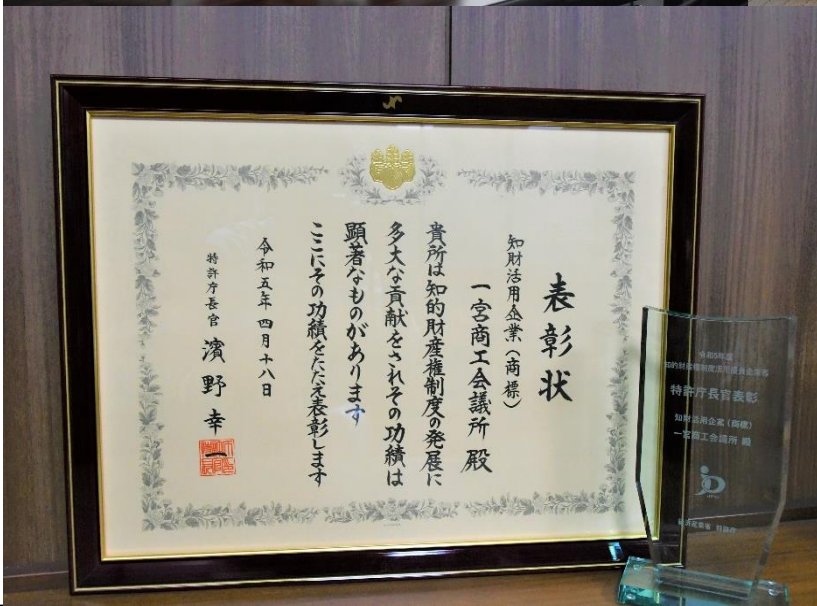 表彰状
知財活用企業（商標）
一宮商工会議所 殿
貴所は知的財産権制度の発展に
多大な貢献をされその功績は
顕著なものがあります
ここにその功績をたたえ表彰します
令和五年四月十八日
特許庁長官 濱野幸一
令和5年度
知的財産権制度活用優良企業等
特許庁長官表彰
知財活用企業（商標）
一宮商工会議所 殿
経済産業省 特許庁